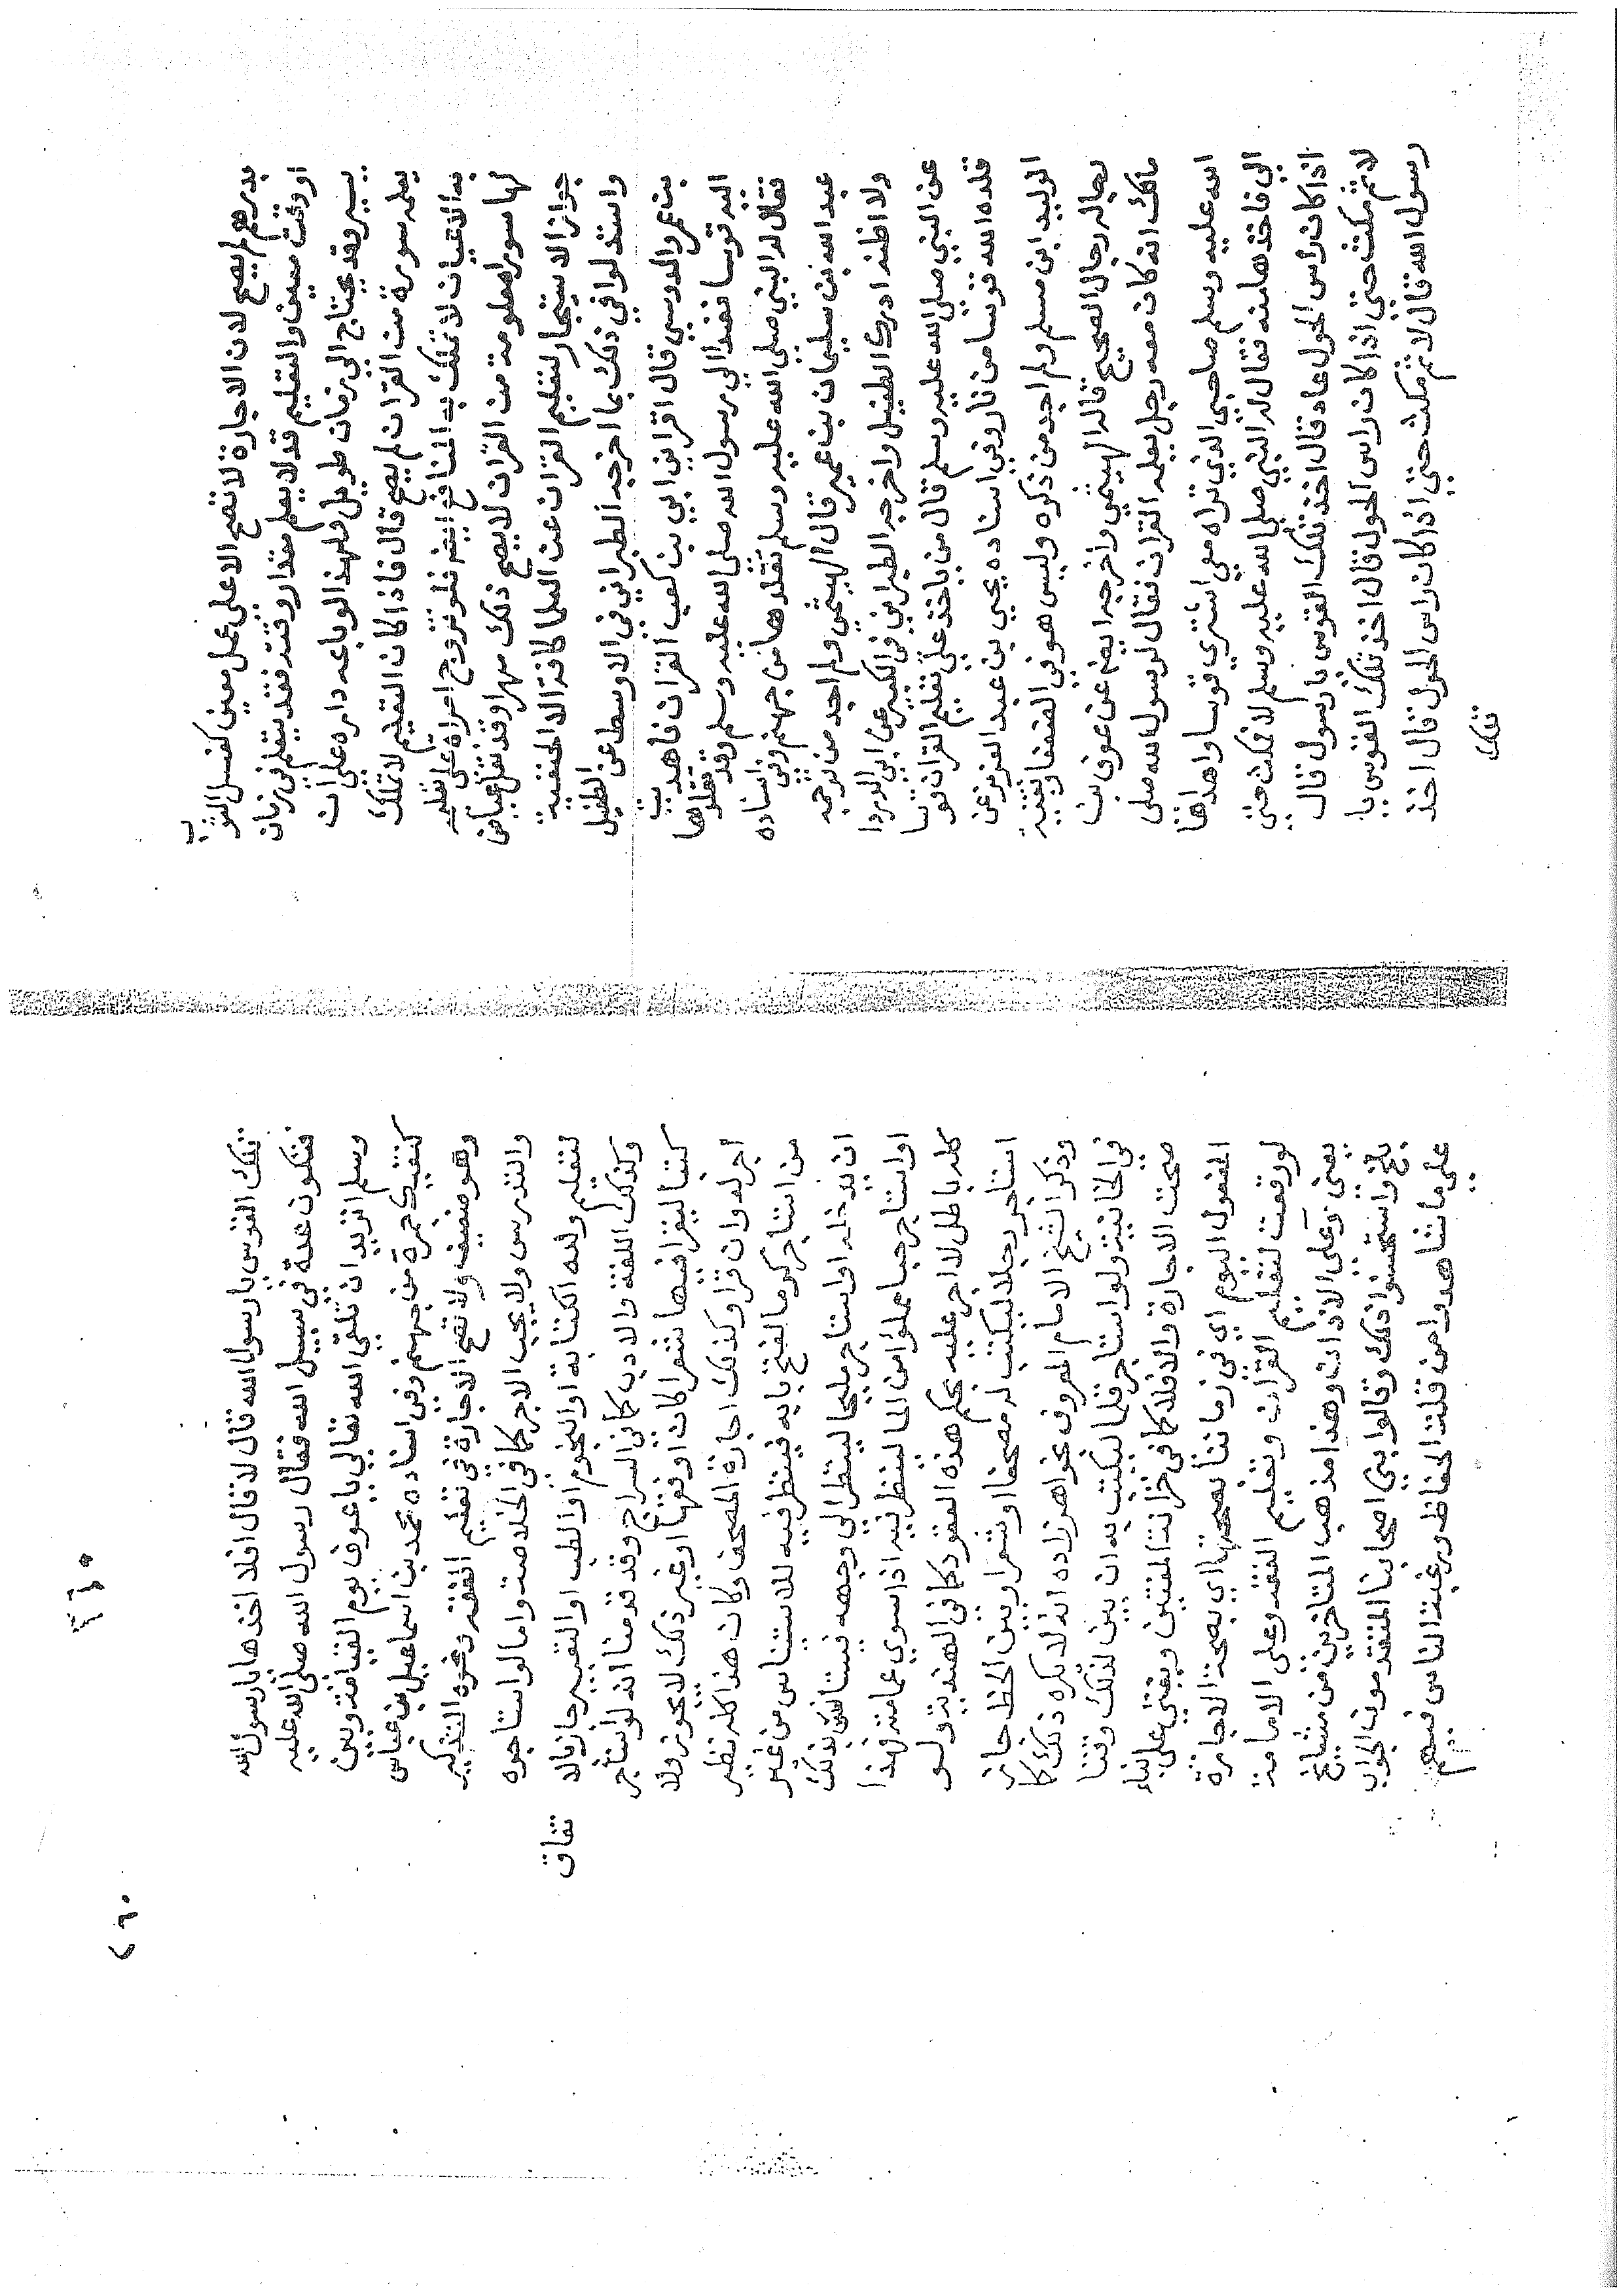 بدرهم لم يصح لان الاجارة لا تصح الا علي عمل معين كغسل الثوب
او وقت معين والتعليم قد لا يعلم مقدار وقته فقد يتعلم في زمان
يسير وقد يحتاج الي زمان طويل ولهذا لو باعه داره علي ان
يعلمه سورة من القران لم يصح قال فاذا كان التعليم لا تملك
به الاعيان لا تملك به المنافع ايضا فلو تزوج امراة علي تعليم
لها سورا معلومة من القران لا يصح ذلك مهرا وقد نقل عياض
جواز الاستيجار لتعليم القران عن العلما كافة الا الحنفية
واستدلوا في ذلك بما اخرجه الطبراني في الاوسط عن الطفيل
بن عمرو الدوسي قال اقراني ابي بن كعب القران فاهديت
اليه قوسا فغدا الي رسول الله صلى الله عليه وسلم وقد تقلدها
فقال له النبي صلي الله عليه وسلم تقلدها من جهنم وفي اسناده
عبد الله بن سليمان بن عمير قال الهيثمي ولم اجد من ترجمه
ولا اظنه ادرك الطفيل واخرجه الطبراني في الكبير عن ابي الدردا
عن النبي صلى الله عليه وسلم قال من ياخذ علي تعليم القران قوسا
قلده الله قوسا من نار وفي اسناده يحيي بن عبد العزيز عن
الوليد ابن مسلم ولم اجد من ذكره وليس هو في الضعفا وبقية
رجاله رجال الصحيح قاله الهيثمي واخرجه ايضا عن عوف بن
مالك انه كان معه رجل يعلمه القران فقال لرسول الله صلى
الله عليه وسلم صاحبي الذي تراه معي اشتري قوسا واهداها
الي فاخذها منه فقال له النبي صلي الله عليه وسلم لا فمكث حتي
اذا كان راس الحول عاد قال اخذ تلك القوس يا رسول قال
لا ثم مكث حتي اذا كان راس الحول قال اخذ تلك القوس يا
رسول الله قال لا ثم مكث حتي اذا كان راس الحول قال اخذ
تلك
تلك القوس يا رسول الله قال لا قال افلا اخذها يا رسول الله
فتكون عدة في سبيل الله فقال رسول الله صلى الله عليه
وسلم اتريد ان تلقي الله تعالي يا عوف يوم القيامة وبين
كتفيك جمرة من جهنم وفي اسناده محمد بن اسماعيل بن عياش
وهو ضعيف ولا تصح الاجارة في تعليم الفقه ونحوه التذكير
والتدريس ولا يجب الاجر كما في الخلاصة واما لو استاجره
لتعليم ولده الكتابة او النجوم او الطب او التعبير جاز بالا
تفاق
وكذلك اللغة والادب كما في السراج وقد قدمنا انه لو استاجر
كتبا ليقرا فيها شعرا كان او فقها او غير ذلك لا يجوز ولا
اجر له وان قرا وكذلك اجارة المصحف وكان هذا كله نظير
من استاجر كرما لفتح بابه فينظر فيه للاستيناس من غير
ان يدخله او استاجر مليحا لينظر الي وجهه فيستانس بذلك
او استاجر جبا مملوا من الما لينظر فيه اذا سوي عمامته فهذا
كله باطل لا اجر عليه بحكم هذه العقود كما في الهندية ولو
استاجر رجلا ليكتب له مصحفا او شعرا وبين الخط جاز
وذكر الشيخ الامام المعروف بخواهر زاده انه لا يكره ذلك كما
في الخانية ولو استاجر قلما ليكتب به ان بين لذلك وقتا
صحت الاجارة والا فلا كما في خزانة المفتين ويفتي علي البناء
المفعول اليوم اي في زماننا بصحتها اي بصحة الاجارة
لو وقعت لتعليم القران وتعليم الفقه وعلى الامامة
يعني وعلي الاذان وهذا مذهب المتاخرين من مشايخ
بلخ واستحسنوا ذلك وقالوا بني اصحابنا المتقدمون الجواب
علي ما شاهدوا من قلة الحفاظ ورغبة الناس فيهم
٢٦٠